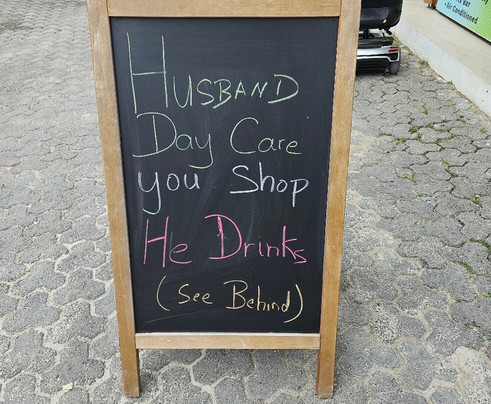 HUSBAND
Day Care
you Shop
He Drinks
(See Behind)
• Air Conditioned